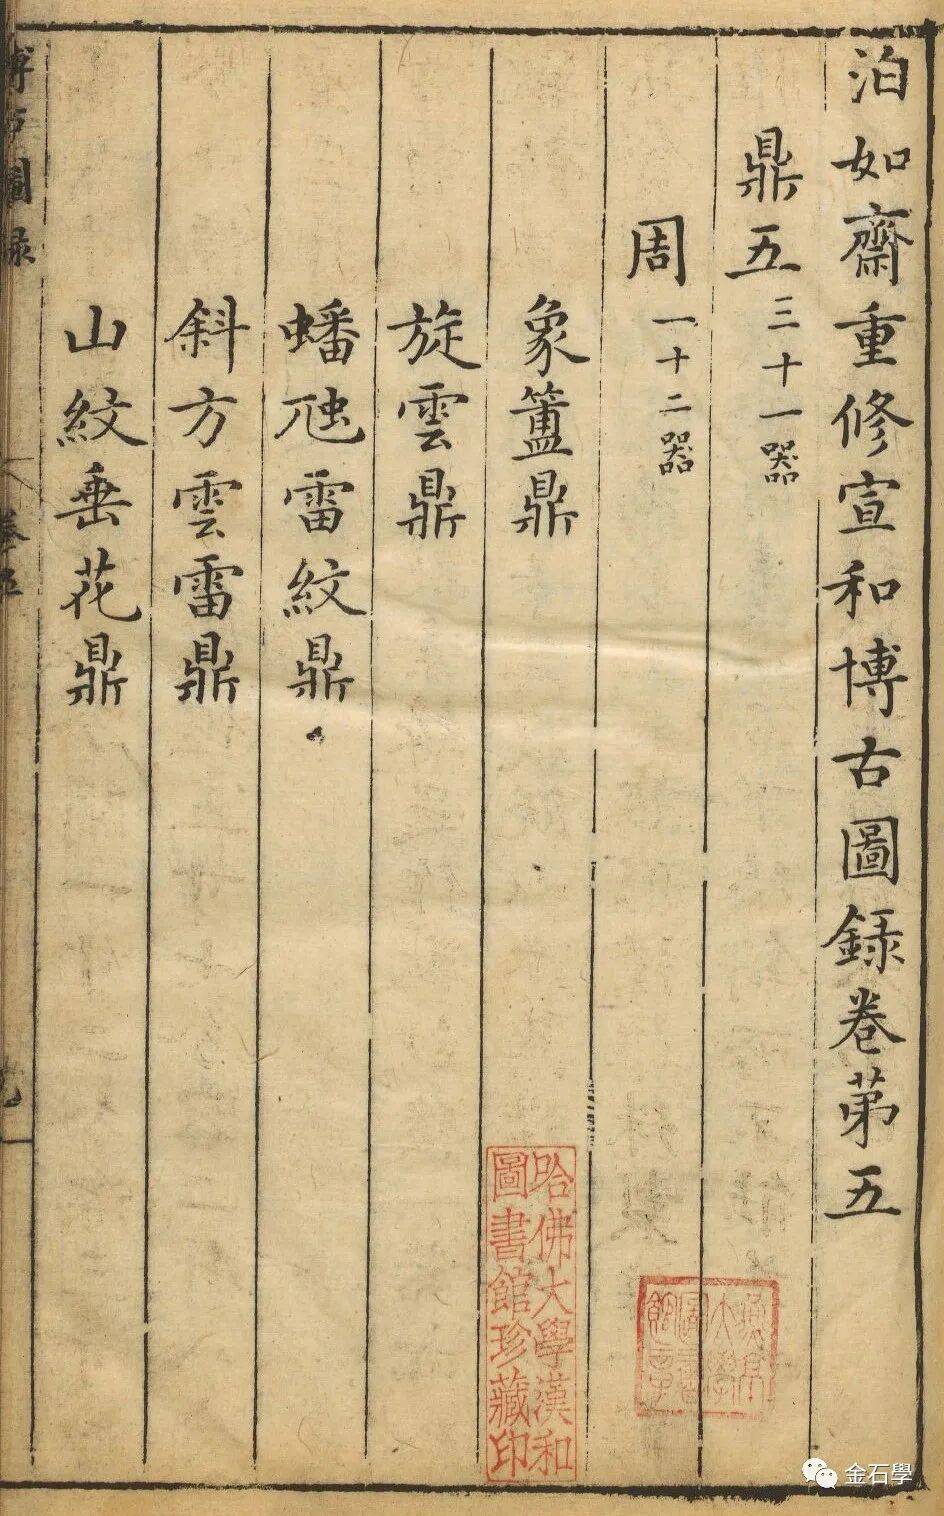 泊如齋重修宣和博古圖錄卷第五
鼎五三十一器
周一十二器
象簠鼎
旋雲鼎
蟠虺雷紋鼎
斜方雲雷鼎
山紋垂花鼎
博古圖録
卷五
哈佛大學漢和
圖書館珍藏印
金石學